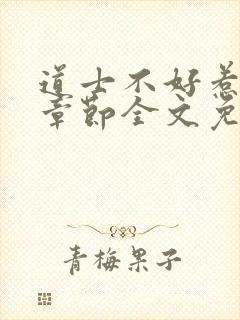 道士不好惹
章节全文免
青梅果子